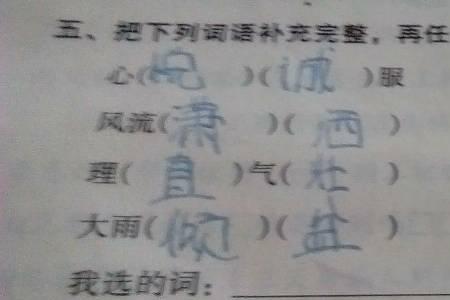 五、把下列词语补充完整，再任
心(悦)(诚)服
风流(萧)(洒)
理(直)气(壮)
大雨(倾)(盆)
我选的词：